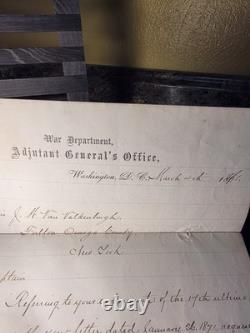 War Department,
Adjutant General's Office,
Washington, D. C. March 4th 1871.
J. H. Van Valkenburgh
Fulton Oswego County
New York
Captain
Referring to your of the 17th ultimo
your letter dated January 26, 1871,